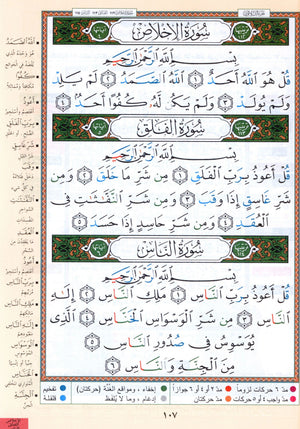 سُورَةُ الإِخْلَاصِ
بِسْمِ ٱللَّهِ ٱلرَّحْمَٰنِ ٱلرَّحِيمِ
قُلْ هُوَ ٱللَّهُ أَحَدٌ ١ ٱللَّهُ ٱلصَّمَدُ ٢ لَمْ يَلِدْ
وَلَمْ يُولَدْ ٣ وَلَمْ يَكُن لَّهُۥ كُفُوًا أَحَدٌۢ ٤
سُورَةُ الفَلَقِ
بِسْمِ ٱللَّهِ ٱلرَّحْمَٰنِ ٱلرَّحِيمِ
قُلْ أَعُوذُ بِرَبِّ ٱلْفَلَقِ ١ مِن شَرِّ مَا خَلَقَ ٢ وَمِن
شَرِّ غَاسِقٍ إِذَا وَقَبَ ٣ وَمِن شَرِّ ٱلنَّفَّٰثَٰتِ فِى
ٱلْعُقَدِ ٤ وَمِن شَرِّ حَاسِدٍ إِذَا حَسَدَ ٥
سُورَةُ النَّاسِ
بِسْمِ ٱللَّهِ ٱلرَّحْمَٰنِ ٱلرَّحِيمِ
قُلْ أَعُوذُ بِرَبِّ ٱلنَّاسِ ١ مَلِكِ ٱلنَّاسِ ٢ إِلَٰهِ
ٱلنَّاسِ ٣ مِن شَرِّ ٱلْوَسْوَاسِ ٱلْخَنَّاسِ ٤ ٱلَّذِى
يُوَسْوِسُ فِى صُدُورِ ٱلنَّاسِ ٥
مِنَ ٱلْجِنَّةِ وَٱلنَّاسِ ٦
مدّ ٦ حركات لزوماً مدّ ٢ أو ٤ أو ٦ جوازاً إخفاء ، ومواقع الغُنَّة (حركتان) تفخيم
مدّ واجب ٤ أو ٥ حركات مدّ حركتان إدغام ، وما لا يُلفَظ قلقلة
١٠٧